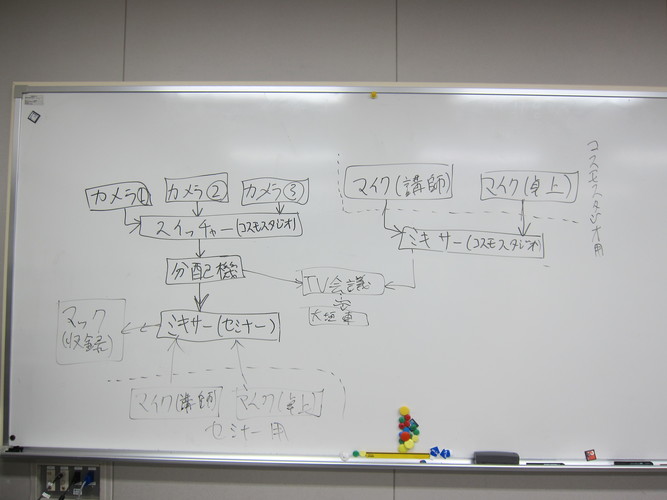 カメラ① カメラ② カメラ③
マイク(講師) マイク(卓上)
コスモスタジオ用
スイッチャー(コスモスタジオ)
ミキサー(コスモスタジオ)
分配機
TV会議
マック
(収録)
ミキサー(セミナー)
マイク(講師) マイク(卓上)
セミナー用